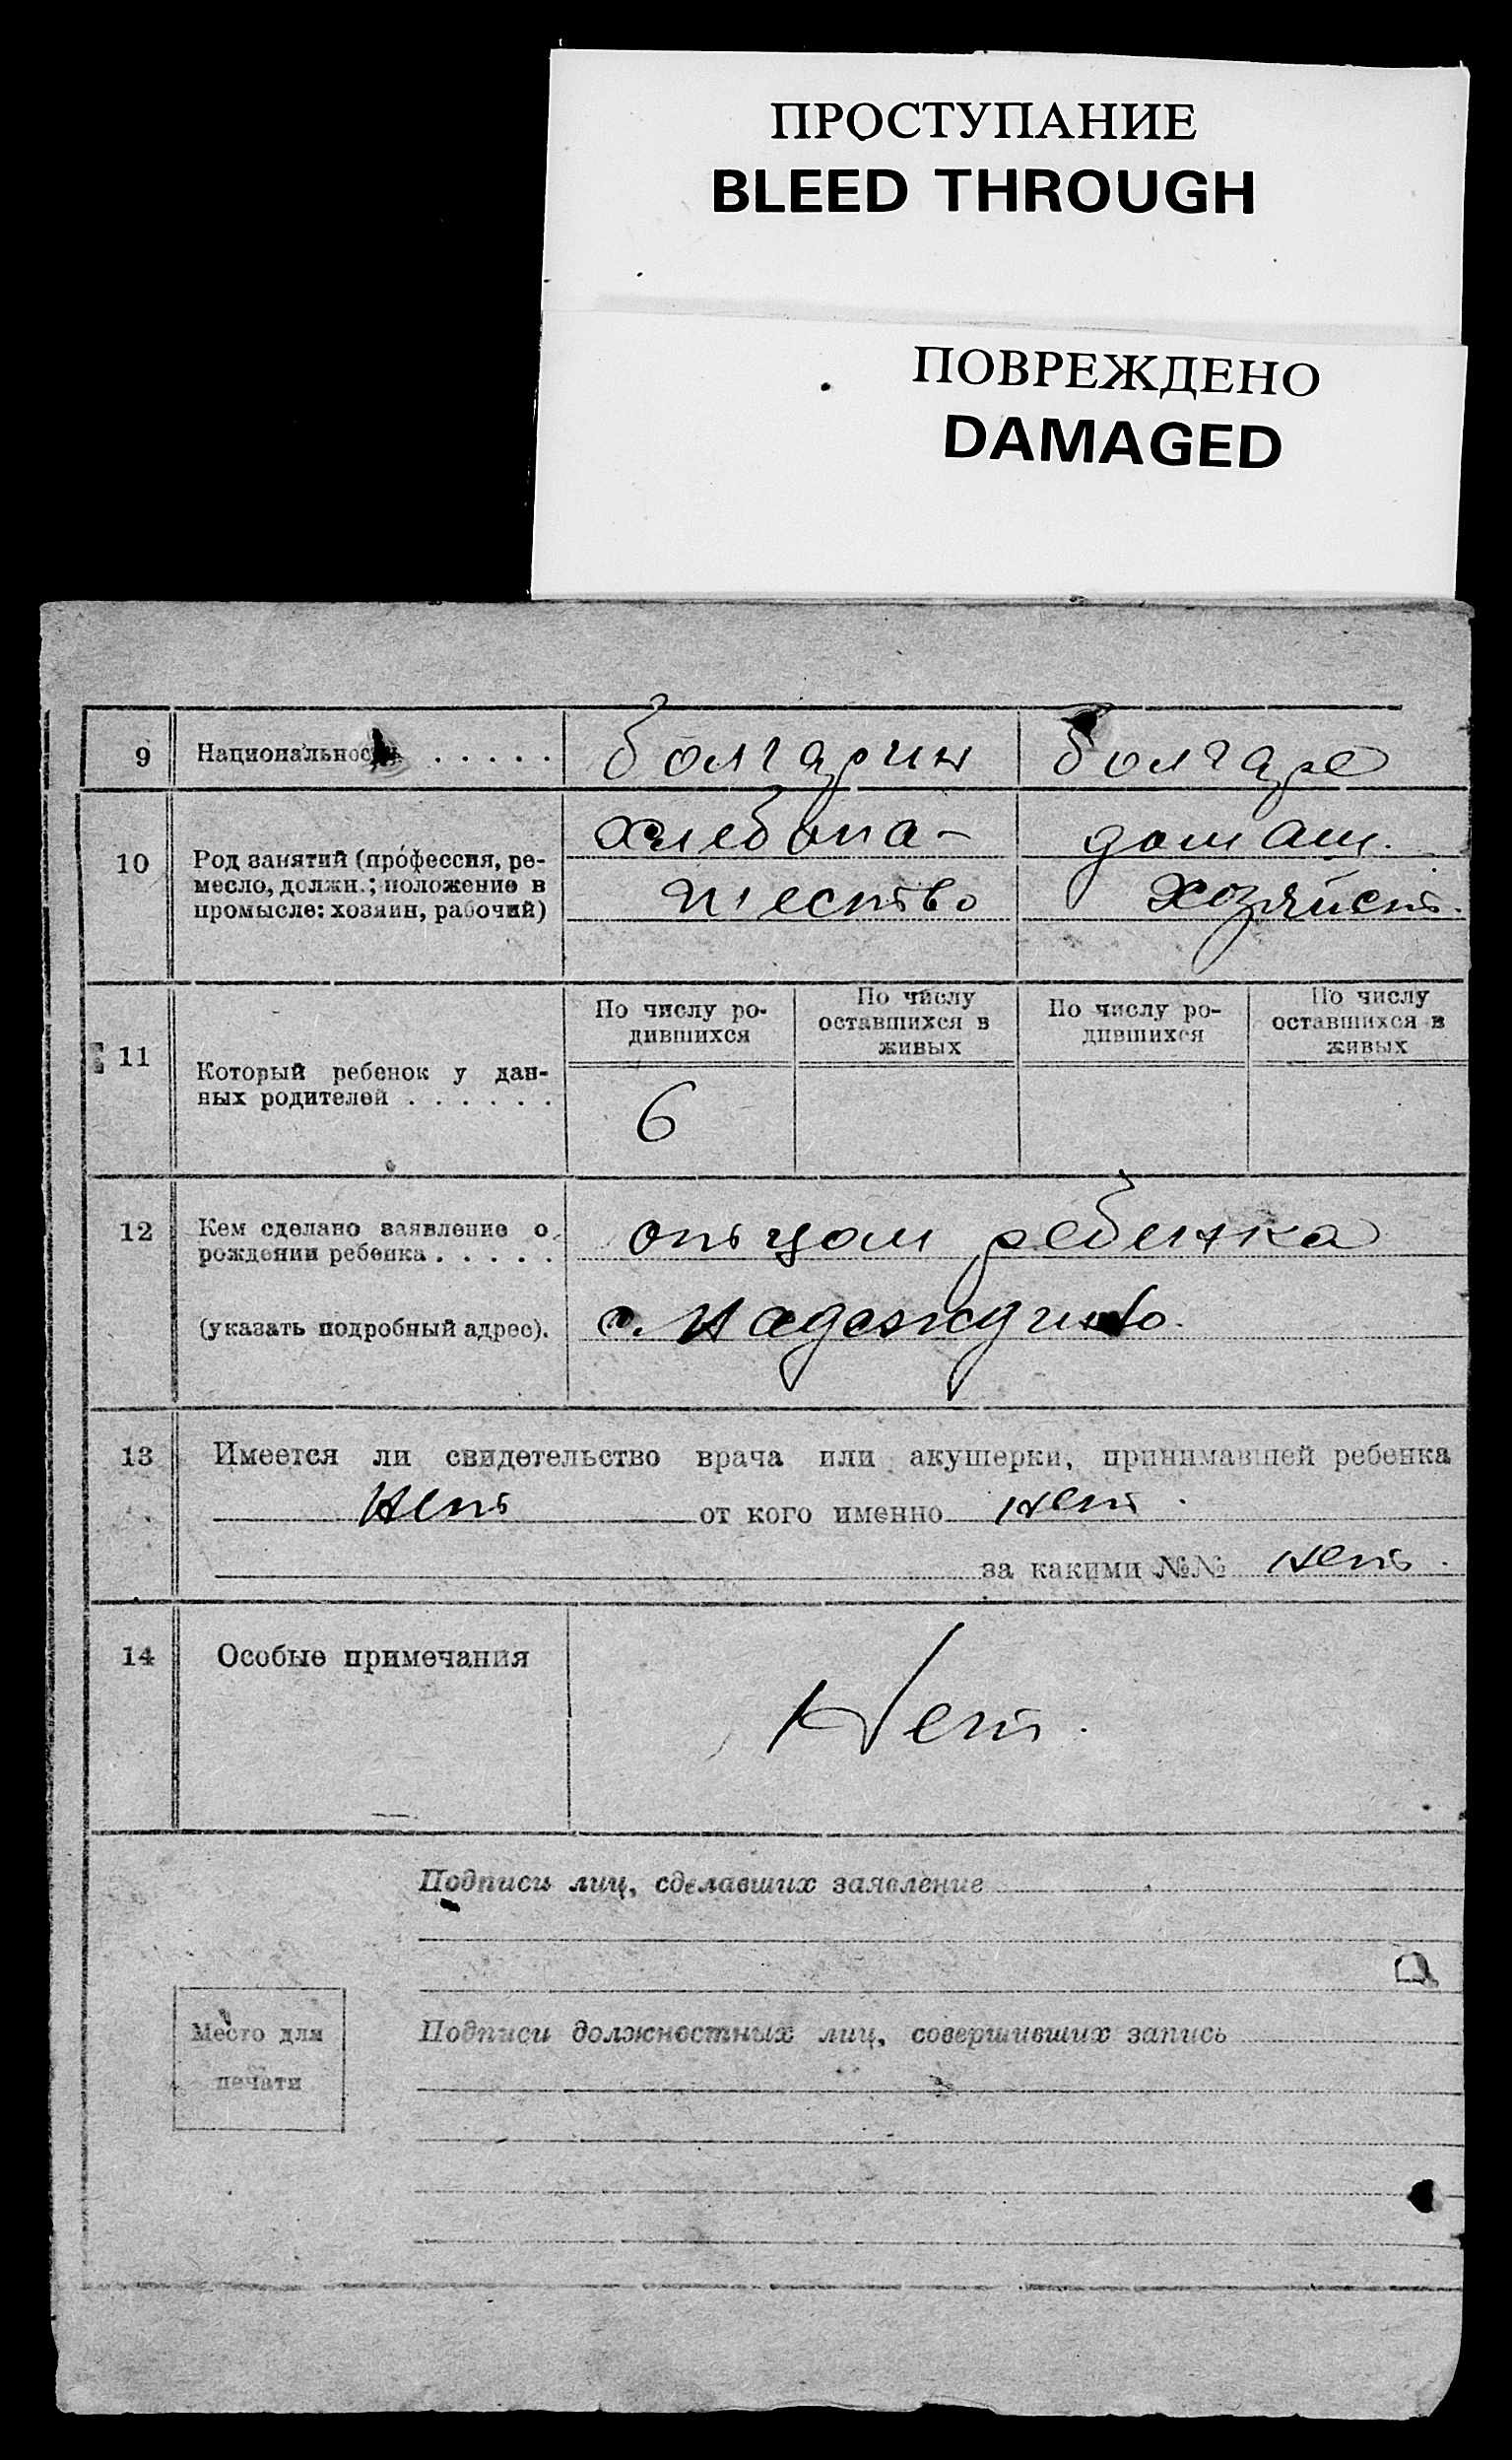 ПРОСТУПАНИЕ
BLEED THROUGH
ПОВРЕЖДЕНО
DAMAGED
9 Национальность . . . . . болгарин болгаре
10 Род занятий (профессия, ре-
месло, должн.; положение в
промысле: хозяин, рабочий)
хлебопа- домаш.
шество хозяйст.
11 Который ребенок у дан-
ных родителей . . . . . .
По числу ро-
дившихся
По числу
оставшихся в
живых
По числу ро-
дившихся
По числу
оставшихся в
живых
6
12 Кем сделано заявление о
рождении ребенка . . . . .
отцом ребенка
(указать подробный адрес). с. Надеждино.
13 Имеется ли свидетельство врача или акушерки, принимавшей ребенка
нет от кого именно нет.
за какими №№ нет.
14 Особые примечания
Нет.
Подписи лиц, сделавших заявление
Место для
печати
Подписи должностных лиц, совершивших запись